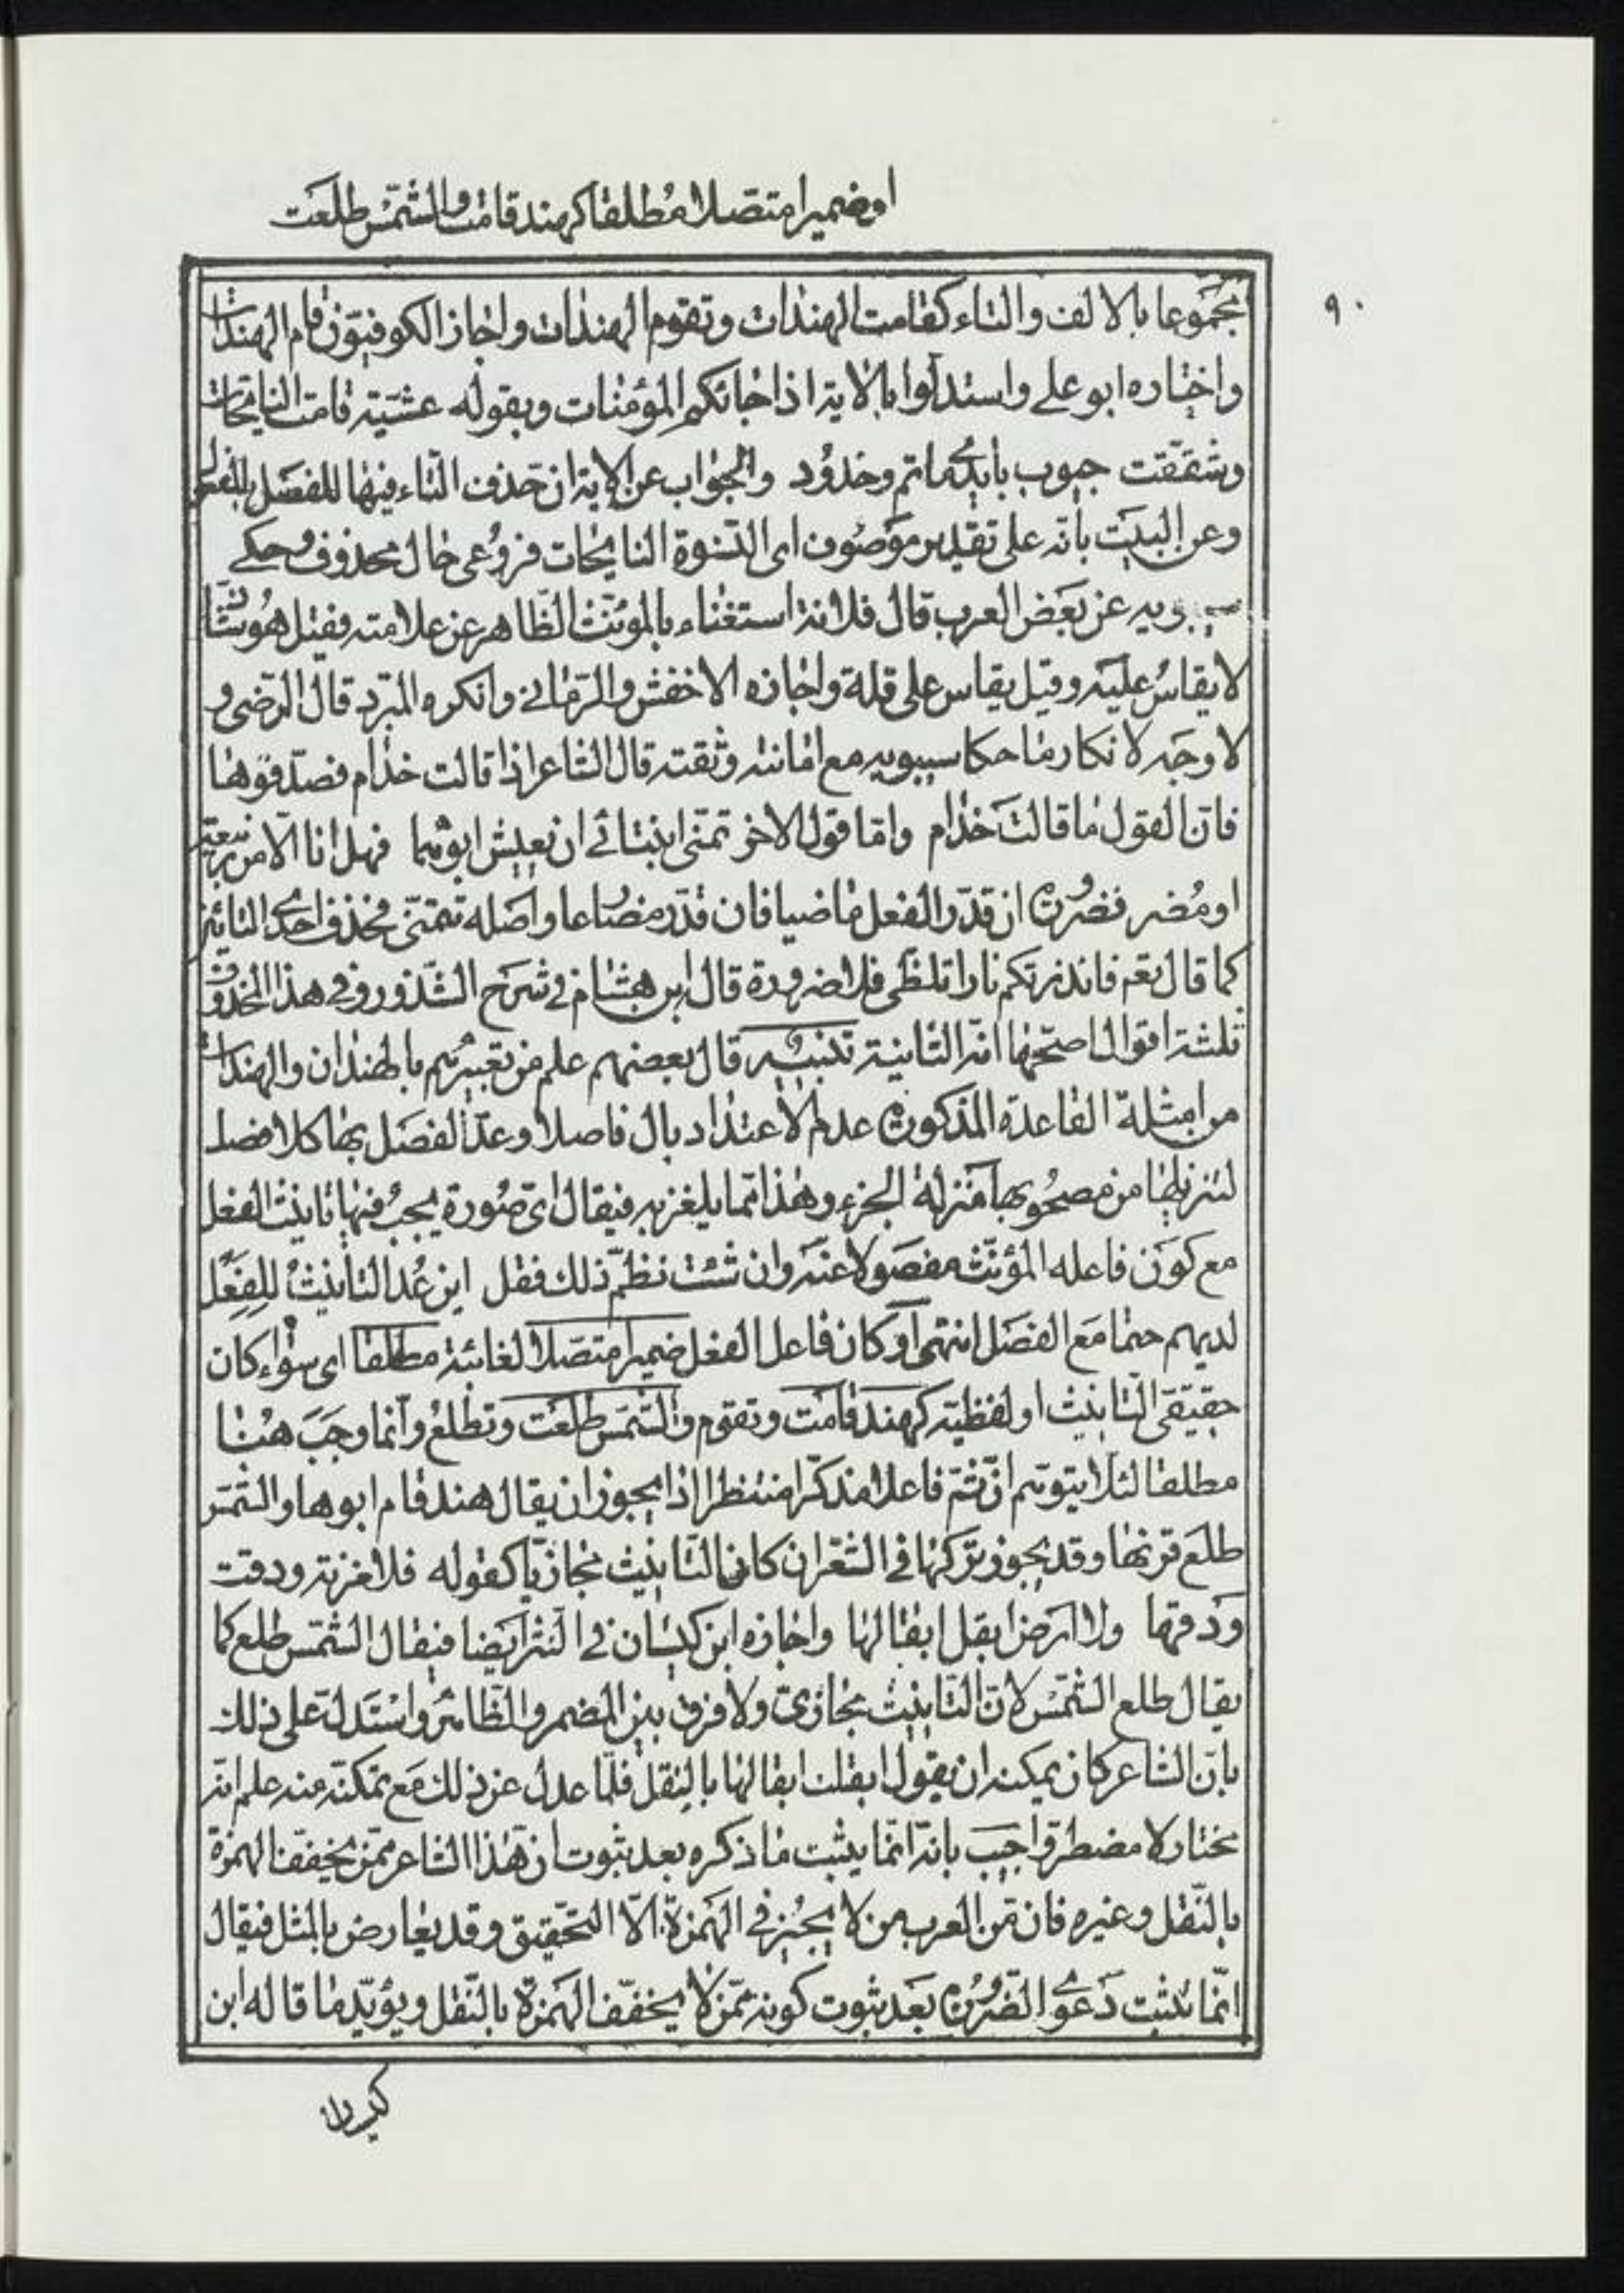 او ضميرا متصلا مُطلقا كهند قامت والشمْس طلعَت
٩٠
مجموعا بالالف والتاء كقامت الهندات وتقوم الهندات واجاز الكوفيّون قام الهندات
واختاره ابو علي واستدلّوا بالاية اذا جائكم المؤمنات وبقوله عشيّة قامت النايحات
وشققت جيوب بايدي ماتم وخدُود والجواب عن الاية ان حذف التاء فيها للفصل بالمفعول
وعن البيت بانّه على تقدير موصُوف اى النّسوة النايحات فروُعى حال محذوف وحكى
سيبويه عن بعَض العرب قال فلانة استغناء بالمؤنّث الظّاهر عن علامته فقيل هُو شاذّ
لا يقاسُ عليَه وقيل يقاس على قلة واجازه الاخفش والرّمانى وانكره المبرّد قال الرّضى و
لا وجَه لانكار ما حكا سيبويه مع امانته وثقته قال الشاعر اذا قالت خذام فصدّقوها
فانّ القول ما قالت خذام وامّا قول الاخر تمنّى ابنتائى ان يعيش ابوهما فهل انا الّا من ربيعة
او مُضر فضرُورة ان قدّر الفعل ماضيا فان قدّر مضارعا واصَله تتمنّى فحذف احدى التائين
كما قال تعم فانذرتكم نارا تلظّى فلا ضرورة قال ابن هشام فى شرَح الشّذور وفى هذا المحذوف
ثلثة اقوال اصحّها انّه الثانية تنبيه قال بعضهم علم من تعبيرهم بالهندان والهندات
من امثلة القاعدة المذكورة عدم الاعتداد بال فاصلا وعدّ الفصَل بها كلا فصل
لتنزيلها من مصحُوبها مَنزلة الجزء وهذا ممّا يلغز به فيقال اىّ صُورة يجبُ فيها تانيث الفعل
مع كوَن فاعله المؤنّث مفصَولا عنَه وان شئت نظمَ ذلك فقل اين غُد التأنيثُ للفِعَل
لديهم حتما مَع الفصَل انتهى او كان فاعل الفعل ضميرا متصّلا لغائبة مطلقا اى سواء كان
حقيقىّ التانيث او لفظيّه كهند قامت وتقوم والشمّس طلعَت وتطلعُ وانّما وجَبَ هُنا
مطلقا لئلا يتوهّم انّ ثَمّ فاعلا مذكّرا منتظرا اذ يجوز ان يقال هند قام ابوها والشمس
طلعَ قرنها وقد يجوز تركها فى الشعر ان كان التّانيث مجازيّا كقوله فلا مزنة ودقت
وَدقها ولا ارَض ابقل ابقالها واجازه ابن كيسان فى النثر ايَضا فيقال الشمْس طلع كما
يقال طلع الشمّس لانّ التّانيث مجازىّ ولا فرق بين المضمر والظّاهر واسْتَدلّ على ذلك
بانّ الشاعر كان يمكنه ان يقول ابقلت ابقالها بالنقل فلّما عدل عن ذلك مَع تمكنّه منه علم انّه
مختار لا مضطرّ واجيبَ بانّه انّما يثبت ما ذكره بعد ثبوت انّ هٰذا الشاعر ممّن يخفّف الهمزة
بالنّقل وغيره فان مّن العرب من لا يجُيز فى الهَمزة الّا التّحقيق وقد يعارض بالمثل فيقال
انّما تثبت دَعوى الضّرُورة بعَد ثبوت كونه ممّن لا يخفّف الهَمزة بالنّقل ويؤيّد ما قاله ابن
كيسان